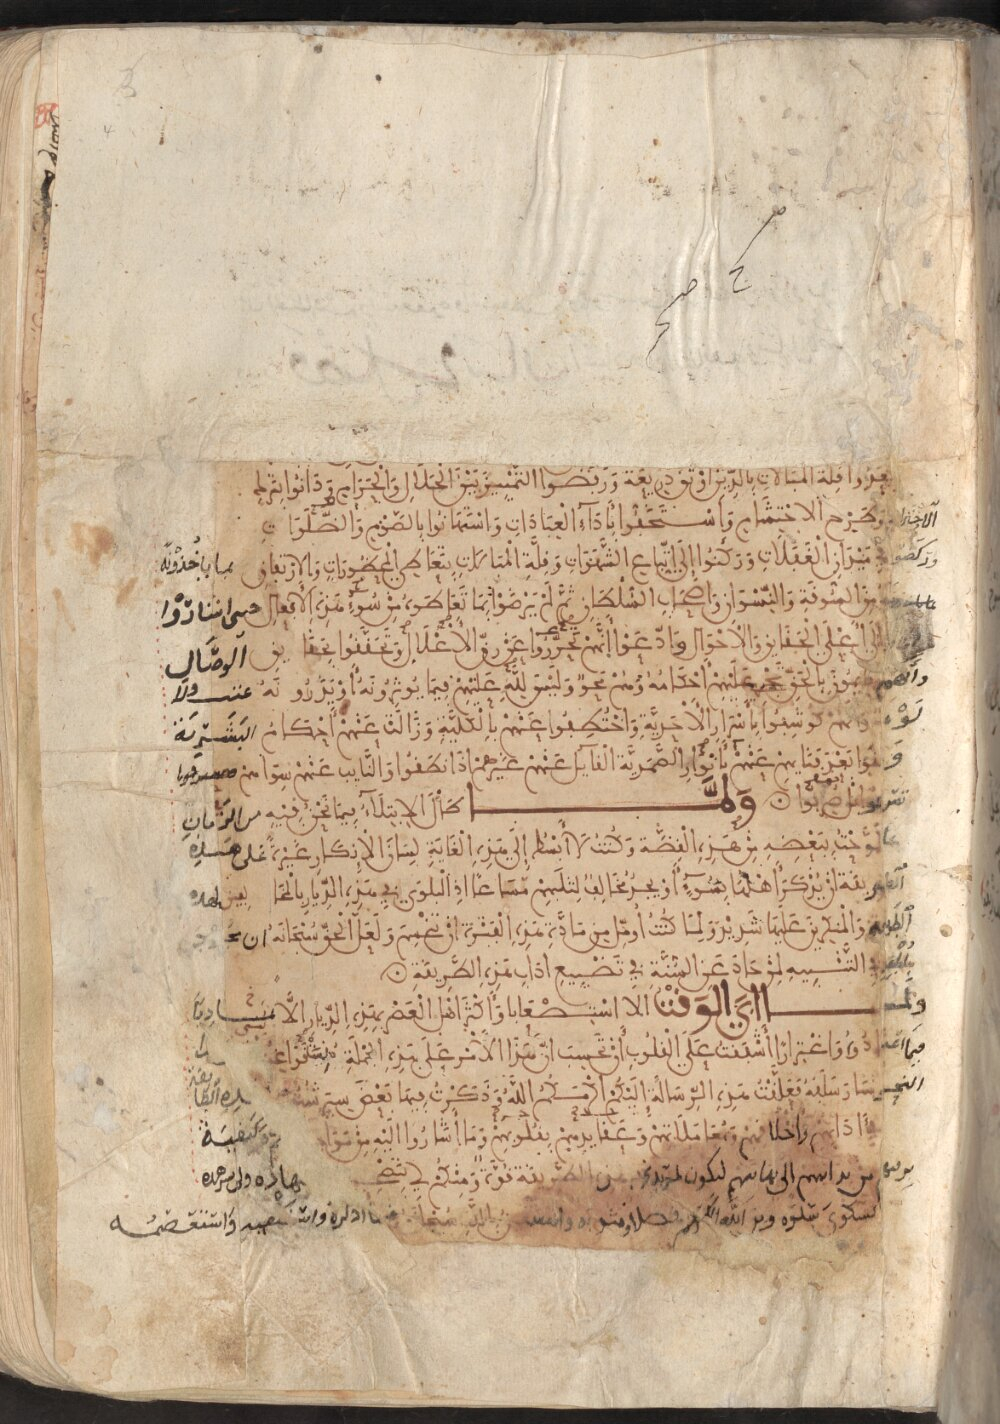 فعدوا قلة المبالاة بالدين اوثق ذريعة ورفضوا التمييز بين الحلال والحرام ودانوا بترك
الاحترام وطرح الاحتشام واستخفوا بأداء العبادات واستهانوا بالصوم والصلوات
وركضوا في ميدان الغفلات وركنوا إلى اتباع الشهوات وقلة المبالات بتعاطي المحظورات والارتفاق بما ياخذونه
من السوقة والنسوان واصحاب السلطان ثم لم يرضوا بما تعاطوه من سوء هذه الافعال حتى اشاروا
إلى أعلى الحقائق والاحوال وادعوا أنهم تحرروا عن رق الأغلال وتحققوا بحقايق الوصال
وانهم قايمون بالحق تجري عليهم أحكامه وهم محو وليس لله عليهم فيما يؤثرونه أو يذرونه عتب ولا
لوم وانهم كوشفوا بأسرار الأحدية واختطفوا عنهم بالكلية وزالت عنهم أحكام البشرية
وبقوا بعد فنايهم عنهم بأنوار الصمدية القايل عنهم غيرهم اذا نطقوا والنايب عنهم سواهم
تصرفوا بل صرفوا ولما طال الابتلاء فيما نحن فيه من الزمان
بما لوحت ببعضه من هذه القصة وكنت لا أبسط إلى هذه الغاية لسان الانكار غيرة على هذه
الطريقة ان يذكر أهلها بسوء أو يجد مخالف لثلبهم مساغا اذ البلوى في هذه الديار بالمخالفين لهذه
الطريقة والمنكرين عليها شديد ولما كنت أؤمل من مادة هذه الفترة ان تنحسم ولعل الحق سبحانه ان
بلطفه في التنبيه لمن حاد عن السنة في تضييع اداب هذه الطريقة
ولما ابى الوقت الا استصعابا وأكثر اهل العصر بهذه الديار الا تماديا
فيما اعتادوه واغترارا أشفقت على القلوب أن تحسب ان هذا الأمر على هذه الجملة
النحو سار سلفه فعلقت هذه الرسالة اليكم أكرمكم الله وذكرت فيها بعض سير هذه الطايفة
في ادابهم وأخلاقهم ومعاملاتهم وعقايدهم بقلوبهم وما أشاروا اليه من وكيفية
من بدايتهم الى نهايتهم لتكون لمريدي هذه الطريقة قوة ومنكم لي شهادة ولي هذه
الشكوى سلوة ومن الله الكريم فضلا ومثوبة بالله سبحانه فيما اذكره واستعصمه